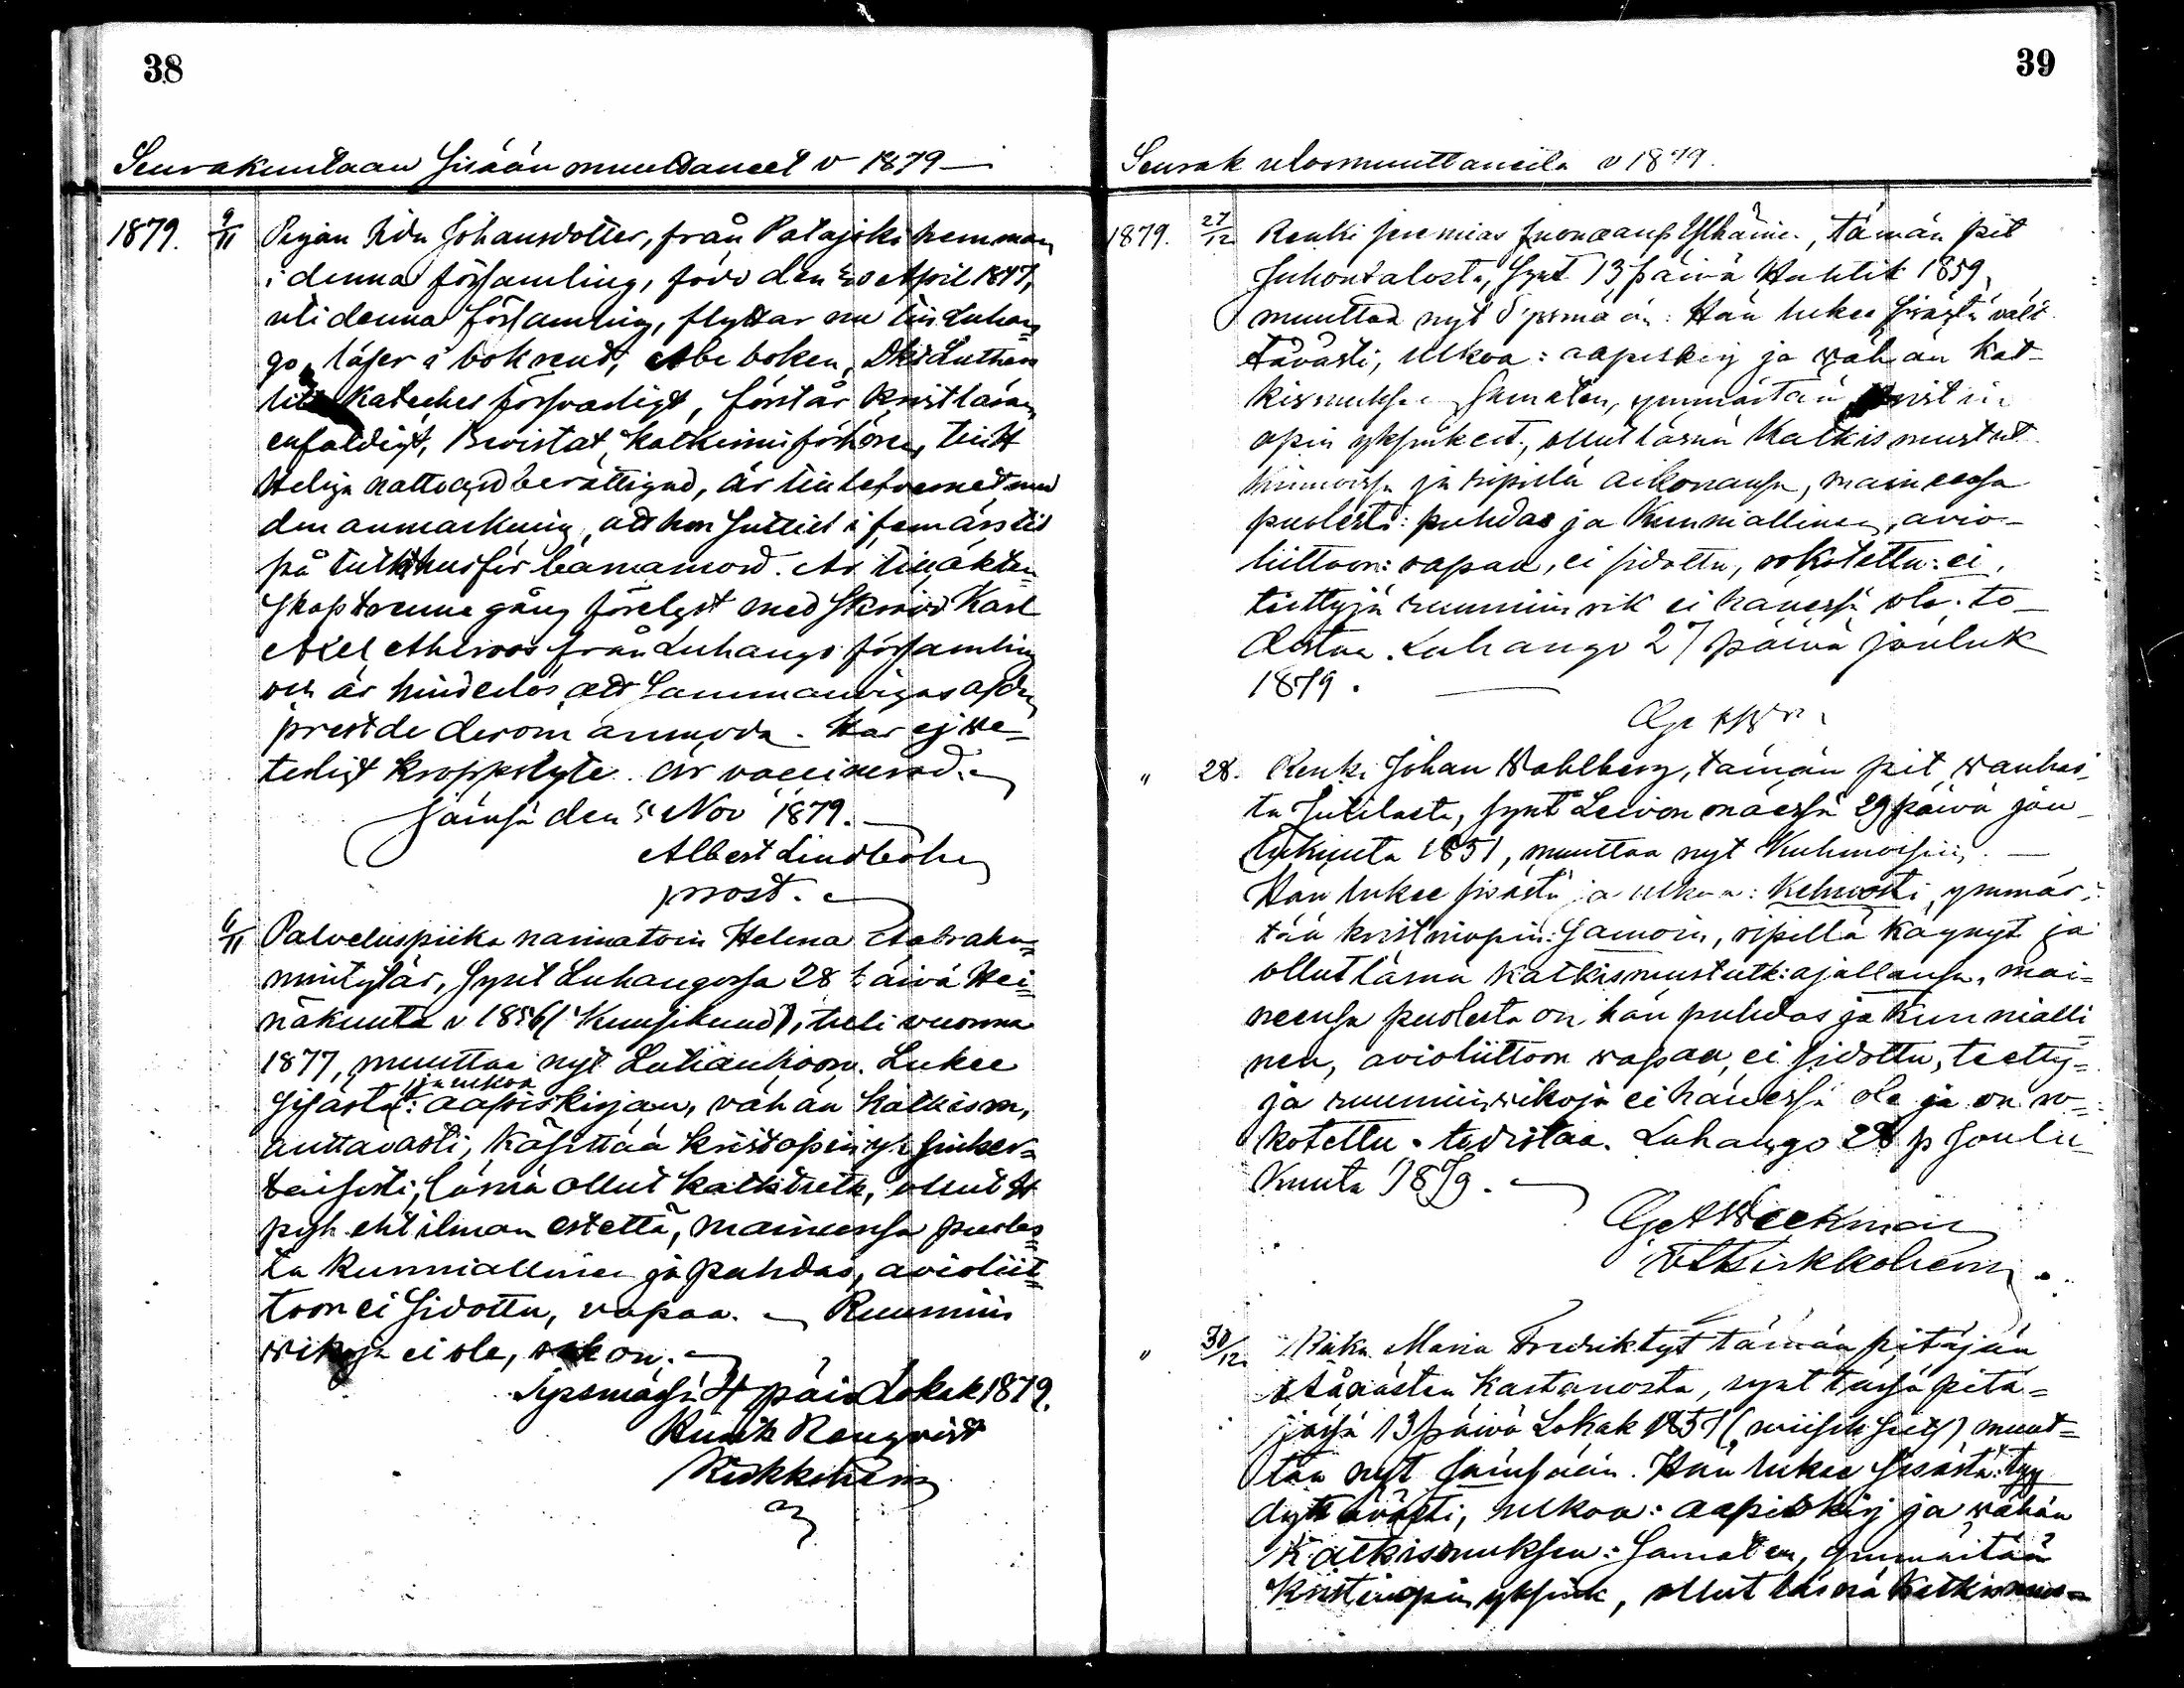 38
Seurakuntaan sisään muuttaneet v 1879
1879. 9/11 Pigan Ida Johansdotter, från Patajoki hemman
i denna församling, född den 20 April 1847,
uti denna församling, flyttar nu till Luhan=
go, läser i bok rent, Abc boken, Dkt Luthers
lilla Kateches försvarligt, förstår kristläran
enfaldigt, Bevistat katkismiförhören, till H
Heliga nattvard berättigad, är till lefvernet med
den anmärkning, att hon suttit i fem års tid
på tukthus för barnamord. Är till äkten=
skap trenne gång förelyst med Skrädd Karl
Axel Ahlroos från Luhango församling
och är hinderlös att sammanvigas af den
prest de derom anmoda. Har ej ve=
terligt kroppslyte. Är vaccinerad.
Jämsä den 5 Nov 1879.
Albert Lindholm
prost.
6/11 Palveluspiika naimatoin Helena Aabraha=
mintytär, synt Luhangossa 28 päivä Hei=
näkuuta v 1856 (Kuusikuud), tuli vuonna
1877, muuttaa nyt Luhankoon. Lukee
ja ulkoa
sisästä: aapiskirjan, vähän katkism,
auttavasti, käsittää kristopin yksinker=
taisesti, läsnä ollut katkttutk, ollut H
pyh eht ilman estettä, maineensa puoles=
ta kunniallinen ja puhdas, avioliit=
toon ei sidottu, vapaa. Ruumiin
vikoja ei ole, rok on.
Sysmässä 4 päiv Lokak 1879.
Renqvist
Kirkkoherra
39
Seurak ulosmuuttaneita v 1879.
1879. 27/12 Renki Jeremias Ylhäinen, tämän pit
Juhontalosta, synt 13 päivä Huhtik 1859,
muuttaa nyt Sysmään. Hän lukee sisästä vält
tävästi, ulkoa: aapiskirj ja vähän kat=
kismuksen samaten, ymmärtää kristin
opin yksinkert, ollut läsnä Katkismustut
kinnoissa ja ripillä aikonansa, maineensa
puolesta: puhdas ja kunniallinen, avio-
liittoon: vapaa, ei sidottu, rokotettu: ei,
tiettyjä ruumiin vik ei hänessä ole. to-
distaa. Luhango 27 päivä jouluk
1879.
" 28. Renki Johan Wahlberg, tämän pit vanhas=
ta Jutilasta, synt Leivonmäessä 29 päivä jou=
lukuuta 1851, muuttaa nyt Kuhmoisiin.
Hän lukee sisästä ja ulkoa: kelvosti, ymmär=
tää kristinopin: samoin, ripillä käynyt ja
ollut läsnä katkismustutk: ajallansa, mai=
neensa puolesta on hän puhdas ja kunnialli
nen, avioliittoon vapaa, ei sidottu, tietty=
jä ruumiin vikoja ei hänessä ole ja on ro=
kotettu. todistaa. Luhango 28 p Joulu
kuuta 1879.
Weckman
vt Kirkkoherra.
" 30/12 Piika Maria Fredriktyt tämän pitäjän
Kartanosta, synt tässä pitä=
jässä 13 päivä Lokak 1857 (viisik seits) muut=
taa nyt Jämsään. Hän lukee sisästä: tyy
dyttävästi, ulkoa: aapiskirj ja vähän
katkismuksen: Samaten, ymmärtää
kristinopin yksink, ollut läsnä katkismus=